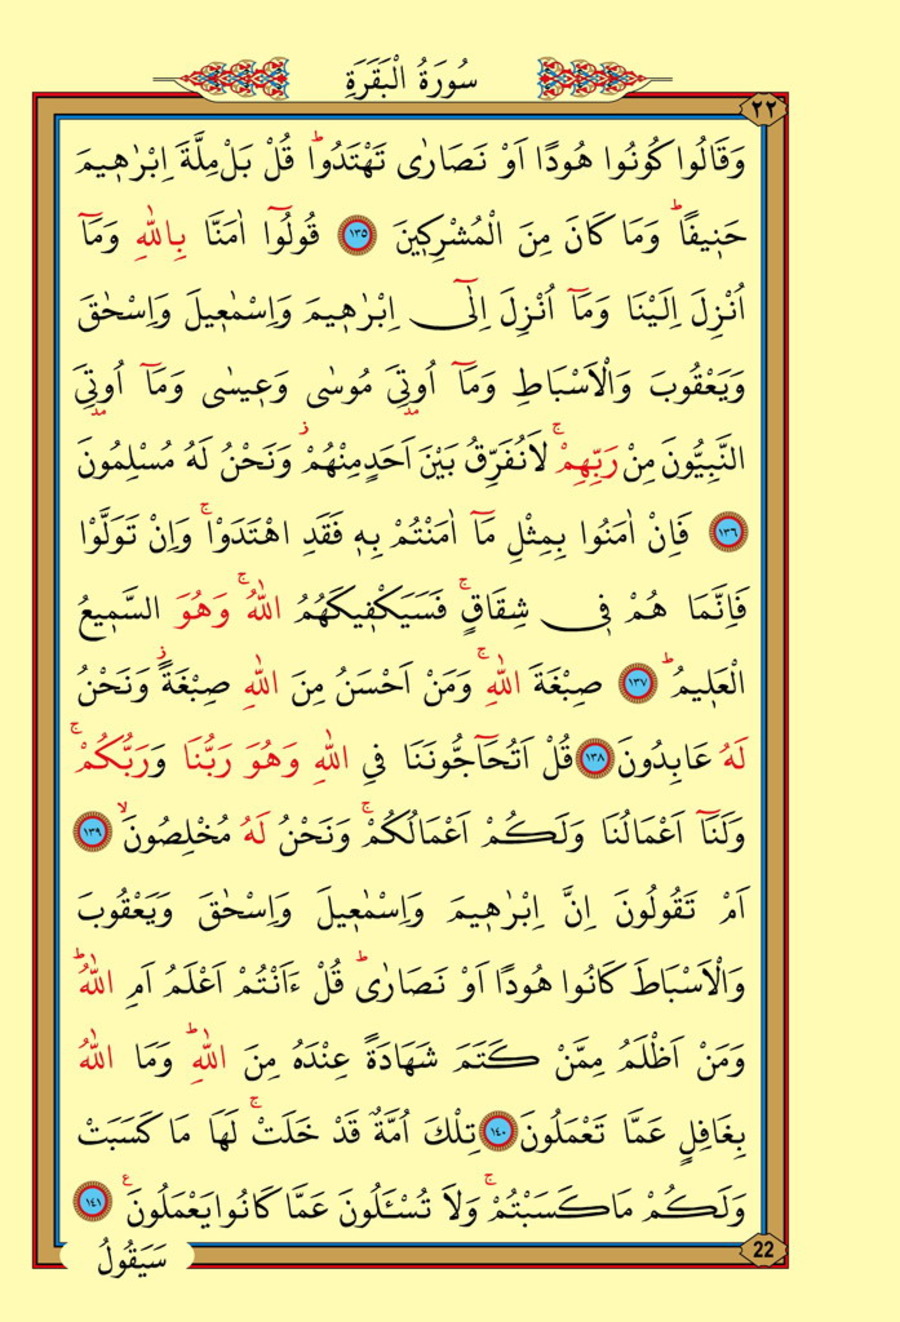 سُورَةُ الْبَقَرَةِ
٢٢
وَقَالُوا كُونُوا هُودًا اَوْ نَصَارٰى تَهْتَدُواۜ قُلْ بَلْ مِلَّةَ اِبْرٰه۪يمَ
حَن۪يفًاۜ وَمَا كَانَ مِنَ الْمُشْرِك۪ينَ ١٣٥ قُولُٓوا اٰمَنَّا بِاللّٰهِ وَمَٓا
اُنْزِلَ اِلَيْنَا وَمَٓا اُنْزِلَ اِلٰٓى اِبْرٰه۪يمَ وَاِسْمٰع۪يلَ وَاِسْحٰقَ
وَيَعْقُوبَ وَالْاَسْبَاطِ وَمَٓا اُو۫تِيَ مُوسٰى وَع۪يسٰى وَمَٓا اُو۫تِيَ
النَّبِيُّونَ مِنْ رَبِّهِمْۚ لَانُفَرِّقُ بَيْنَ اَحَدٍ مِنْهُمْۘ وَنَحْنُ لَهُ مُسْلِمُونَ
١٣٦ فَاِنْ اٰمَنُوا بِمِثْلِ مَٓا اٰمَنْتُمْ بِه۪ فَقَدِ اهْتَدَوْاۚ وَاِنْ تَوَلَّوْا
فَاِنَّمَا هُمْ ف۪ي شِقَاقٍۚ فَسَيَكْف۪يكَهُمُ اللّٰهُۚ وَهُوَ السَّم۪يعُ
الْعَل۪يمُۜ ١٣٧ صِبْغَةَ اللّٰهِۚ وَمَنْ اَحْسَنُ مِنَ اللّٰهِ صِبْغَةًۘ وَنَحْنُ
لَهُ عَابِدُونَ ١٣٨ قُلْ اَتُحَٓاجُّونَنَا فِي اللّٰهِ وَهُوَ رَبُّنَا وَرَبُّكُمْۚ
وَلَنَٓا اَعْمَالُنَا وَلَكُمْ اَعْمَالُكُمْۚ وَنَحْنُ لَهُ مُخْلِصُونَۙ ١٣٩
اَمْ تَقُولُونَ اِنَّ اِبْرٰه۪يمَ وَاِسْمٰع۪يلَ وَاِسْحٰقَ وَيَعْقُوبَ
وَالْاَسْبَاطَ كَانُوا هُودًا اَوْ نَصَارٰىۜ قُلْ ءَاَنْتُمْ اَعْلَمُ اَمِ اللّٰهُۜ
وَمَنْ اَظْلَمُ مِمَّنْ كَتَمَ شَهَادَةً عِنْدَهُ مِنَ اللّٰهِۜ وَمَا اللّٰهُ
بِغَافِلٍ عَمَّا تَعْمَلُونَ ١٤٠ تِلْكَ اُمَّةٌ قَدْ خَلَتْۚ لَهَا مَا كَسَبَتْ
وَلَكُمْ مَا كَسَبْتُمْۚ وَلَا تُسْـَٔلُونَ عَمَّا كَانُوا يَعْمَلُونَ ع ١٤١
22
سَيَقُولُ